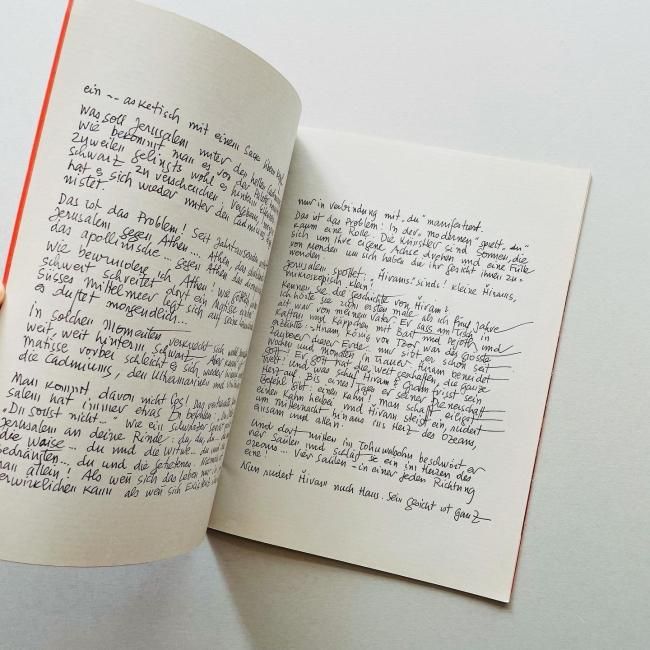 ein -- asketisch mit einem Sage
was soll Jerusalem unter den hellen
wie bekommt man es von der
zuweilen gelingts wohl es hinter
schwarz zu verscheuchen. Vergebens
hat es sich wieder unter den Cadmiums
nistet.
Das ist das Problem! Seit Jahrtausenden
Jerusalem gegen Athen... Athen, das
das apollinische... gegen Athen das
Wie bewundere ich Athen! Wie
schwert schreitet dort ein
süsses Mittelmeer legt sich auf
es duftet morgendlich...
in solchen Momenten verkriecht sich
weit, weit hinterm Schwarz. Aber kaum
Matisse vorbei schleicht es sich wieder
die Cadmiums, den Ultramarinen und
Man kommt davon nicht los! Das
salem hat immer etwas zu
„Du sollst nicht"... wie ein schwarzer
Jerusalem an deine Rinde: du, du, du
die Waise... du und die Witwe... du und
Bedrängten... du und die
man allein! Als weil sich das Leben nur
verwirklichen kann als weil sich
nur in Verbindung mit „du" manifestiert.
Das ist das Problem! In der „modernen" Welt „du"
kaum eine Rolle. Die Künstler sind Sonnen, die
sich um ihre eigene Achse drehen und eine Fülle
von Monden um sich haben die ihr Gesicht ihnen zu-
wenden.
Jerusalem spottet: „Hirams" sinds! kleine Hirams,
mikroskopisch klein!
Kennen sie die Geschichte von Hiram?
Ich hörte sie zum ersten male als ich fünf Jahre
alt war von meinem Vater. Er sass am Tisch in
Kaftan und Käppchen mit Bart und Pejoth und
erzählte: „Hiram König von Zoor war der grösste
Zauberer dieser Erde. Nur sitzt er schon seit
Wochen und Monden in Trauer. Hiram beneidet
Gott! Er Gott hat die Welt erschaffen, die ganze
Welt! und was schuf Hiram? Gram frisst sein
Herz auf. Bis eines Tages er seiner Dienerschaft
Befehl gibt: einen Kahn! Man schafft eiligst
einen Kahn herbei und Hiram steigt ein, rudert
um Mitternacht hinaus ins Herz des Ozeans,
einsam und allein.
Und dort mitten im Tohuwabohu beschwört er
vier Säulen und schlägt sie ein im Herzen des
Ozeans... Vier Säulen – in einer jeden Richtung
eine!
Nun rudert Hiram nach Haus. Sein Gesicht ist ganz